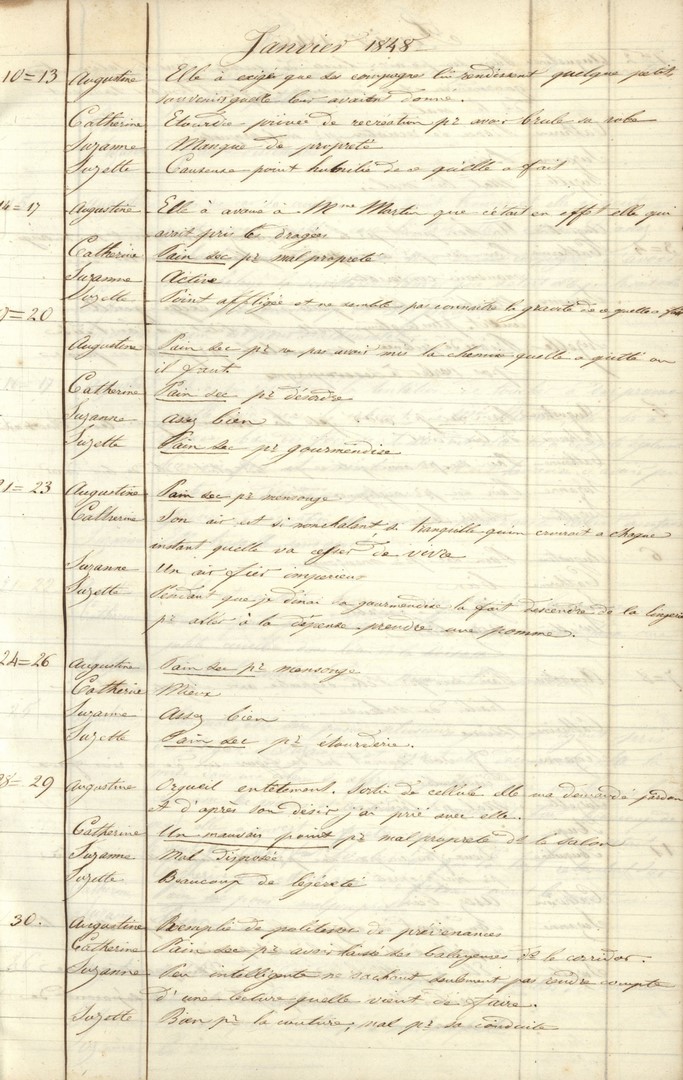 Janvier 1848
10=13 Augustine Elle à exigé que ses compagnes lui rendissent quelque petits
souvenirs quelle leur avait donné.
Catherine Etourdie privée de recreation pr avoir brulé sa robe
Suzanne Manque de propreté
Suzette Causeuse point humiliée de ce qu'elle a fait
14=17 Augustine Elle à avoué à Mme Martin que c'était en effet elle qui
avait pris les dragées
Catherine Pain sec pr malpropreté
Suzanne Active
Suzette Point affligée et ne semble pas connaitre la gravité de ce quelle a fait
17=20
Augustine Pain sec pr ne pas avoir mis la chemise quelle a quitté ou
il faut.
Catherine Pain sec pr désordre
Suzanne assez bien
Suzette Pain sec pr gourmandise
21=23 Augustine Pain sec pr mensonge
Catherine Son air est si nonchalant si tranquille qu'on croirait a chaque
instant quelle va cesser de vivre
Suzanne Un air fier imperieux
Suzette Pendant que je dinai sa gourmandise la fait descendre de la lingerie
pr aller à la dépense prendre une pomme.
24=26 Augustine Pain sec pr mensonge
Catherine Mieux
Suzanne Assez bien
Suzette Pain sec pr étourderie.
28=29 Augustine Orgueil entetement. Sortie de cellule elle ma demandé pardon
et d'après son désir j'ai prié avec elle.
Catherine Un mauvais point pr malpropreté de le salon
Suzanne Mal disposée
Suzette Beaucoup de légéreté
30. Augustine Remplie de politesse de prévenances
Catherine Pain sec pr avoir laissé des balayures ds le corridor.
Suzanne Peu intelligente ne sachant seulement pas rendre compte
d'une lecture quelle vient de faire.
Suzette Bien pr la couture, mal pr sa conduite